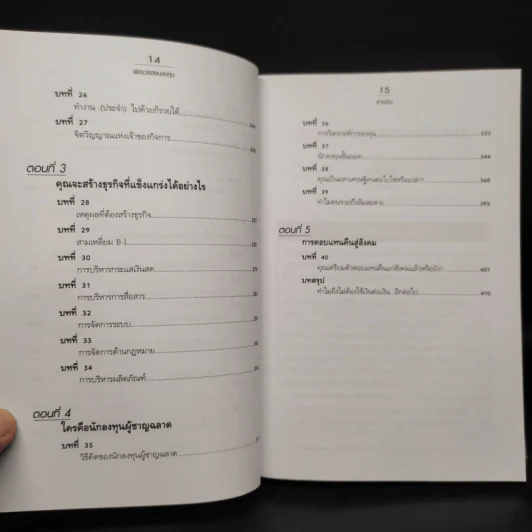 14
พ่อรวยสอนลงทุน
บทที่ 26
ทำงาน (ประจำ) ไปด้วยก็รวยได้
บทที่ 27
จิตวิญญาณแห่งเจ้าของกิจการ
ตอนที่ 3
คุณจะสร้างธุรกิจที่แข็งแกร่งได้อย่างไร
บทที่ 28
เหตุผลที่ต้องสร้างธุรกิจ
บทที่ 29
สามเหลี่ยม B-I
บทที่ 30
การบริหารกระแสเงินสด
บทที่ 31
การบริหารการสื่อสาร
บทที่ 32
การจัดการระบบ
บทที่ 33
การจัดการด้านกฎหมาย
บทที่ 34
การบริหารผลิตภัณฑ์
ตอนที่ 4
ใครคือนักลงทุนผู้ชาญฉลาด
บทที่ 35
วิธีคิดของนักลงทุนผู้ชาญฉลาด
15
สารบัญ
บทที่ 36
การวิเคราะห์การลงทุน
บทที่ 37
นักลงทุนชั้นยอด 344
บทที่ 38
คุณเป็นมหาเศรษฐีคนต่อไปใช่หรือเปล่า? 368
บทที่ 39
ทำไมคนรวยถึงล้มละลาย
ตอนที่ 5
การตอบแทนคืนสู่สังคม
บทที่ 40
คุณเตรียมตัวตอบแทนคืนแก่สังคมแล้วหรือยัง? 401
บทสรุป
ทำไมถึงไม่ต้องใช้เงินต่อเงิน อีกต่อไป